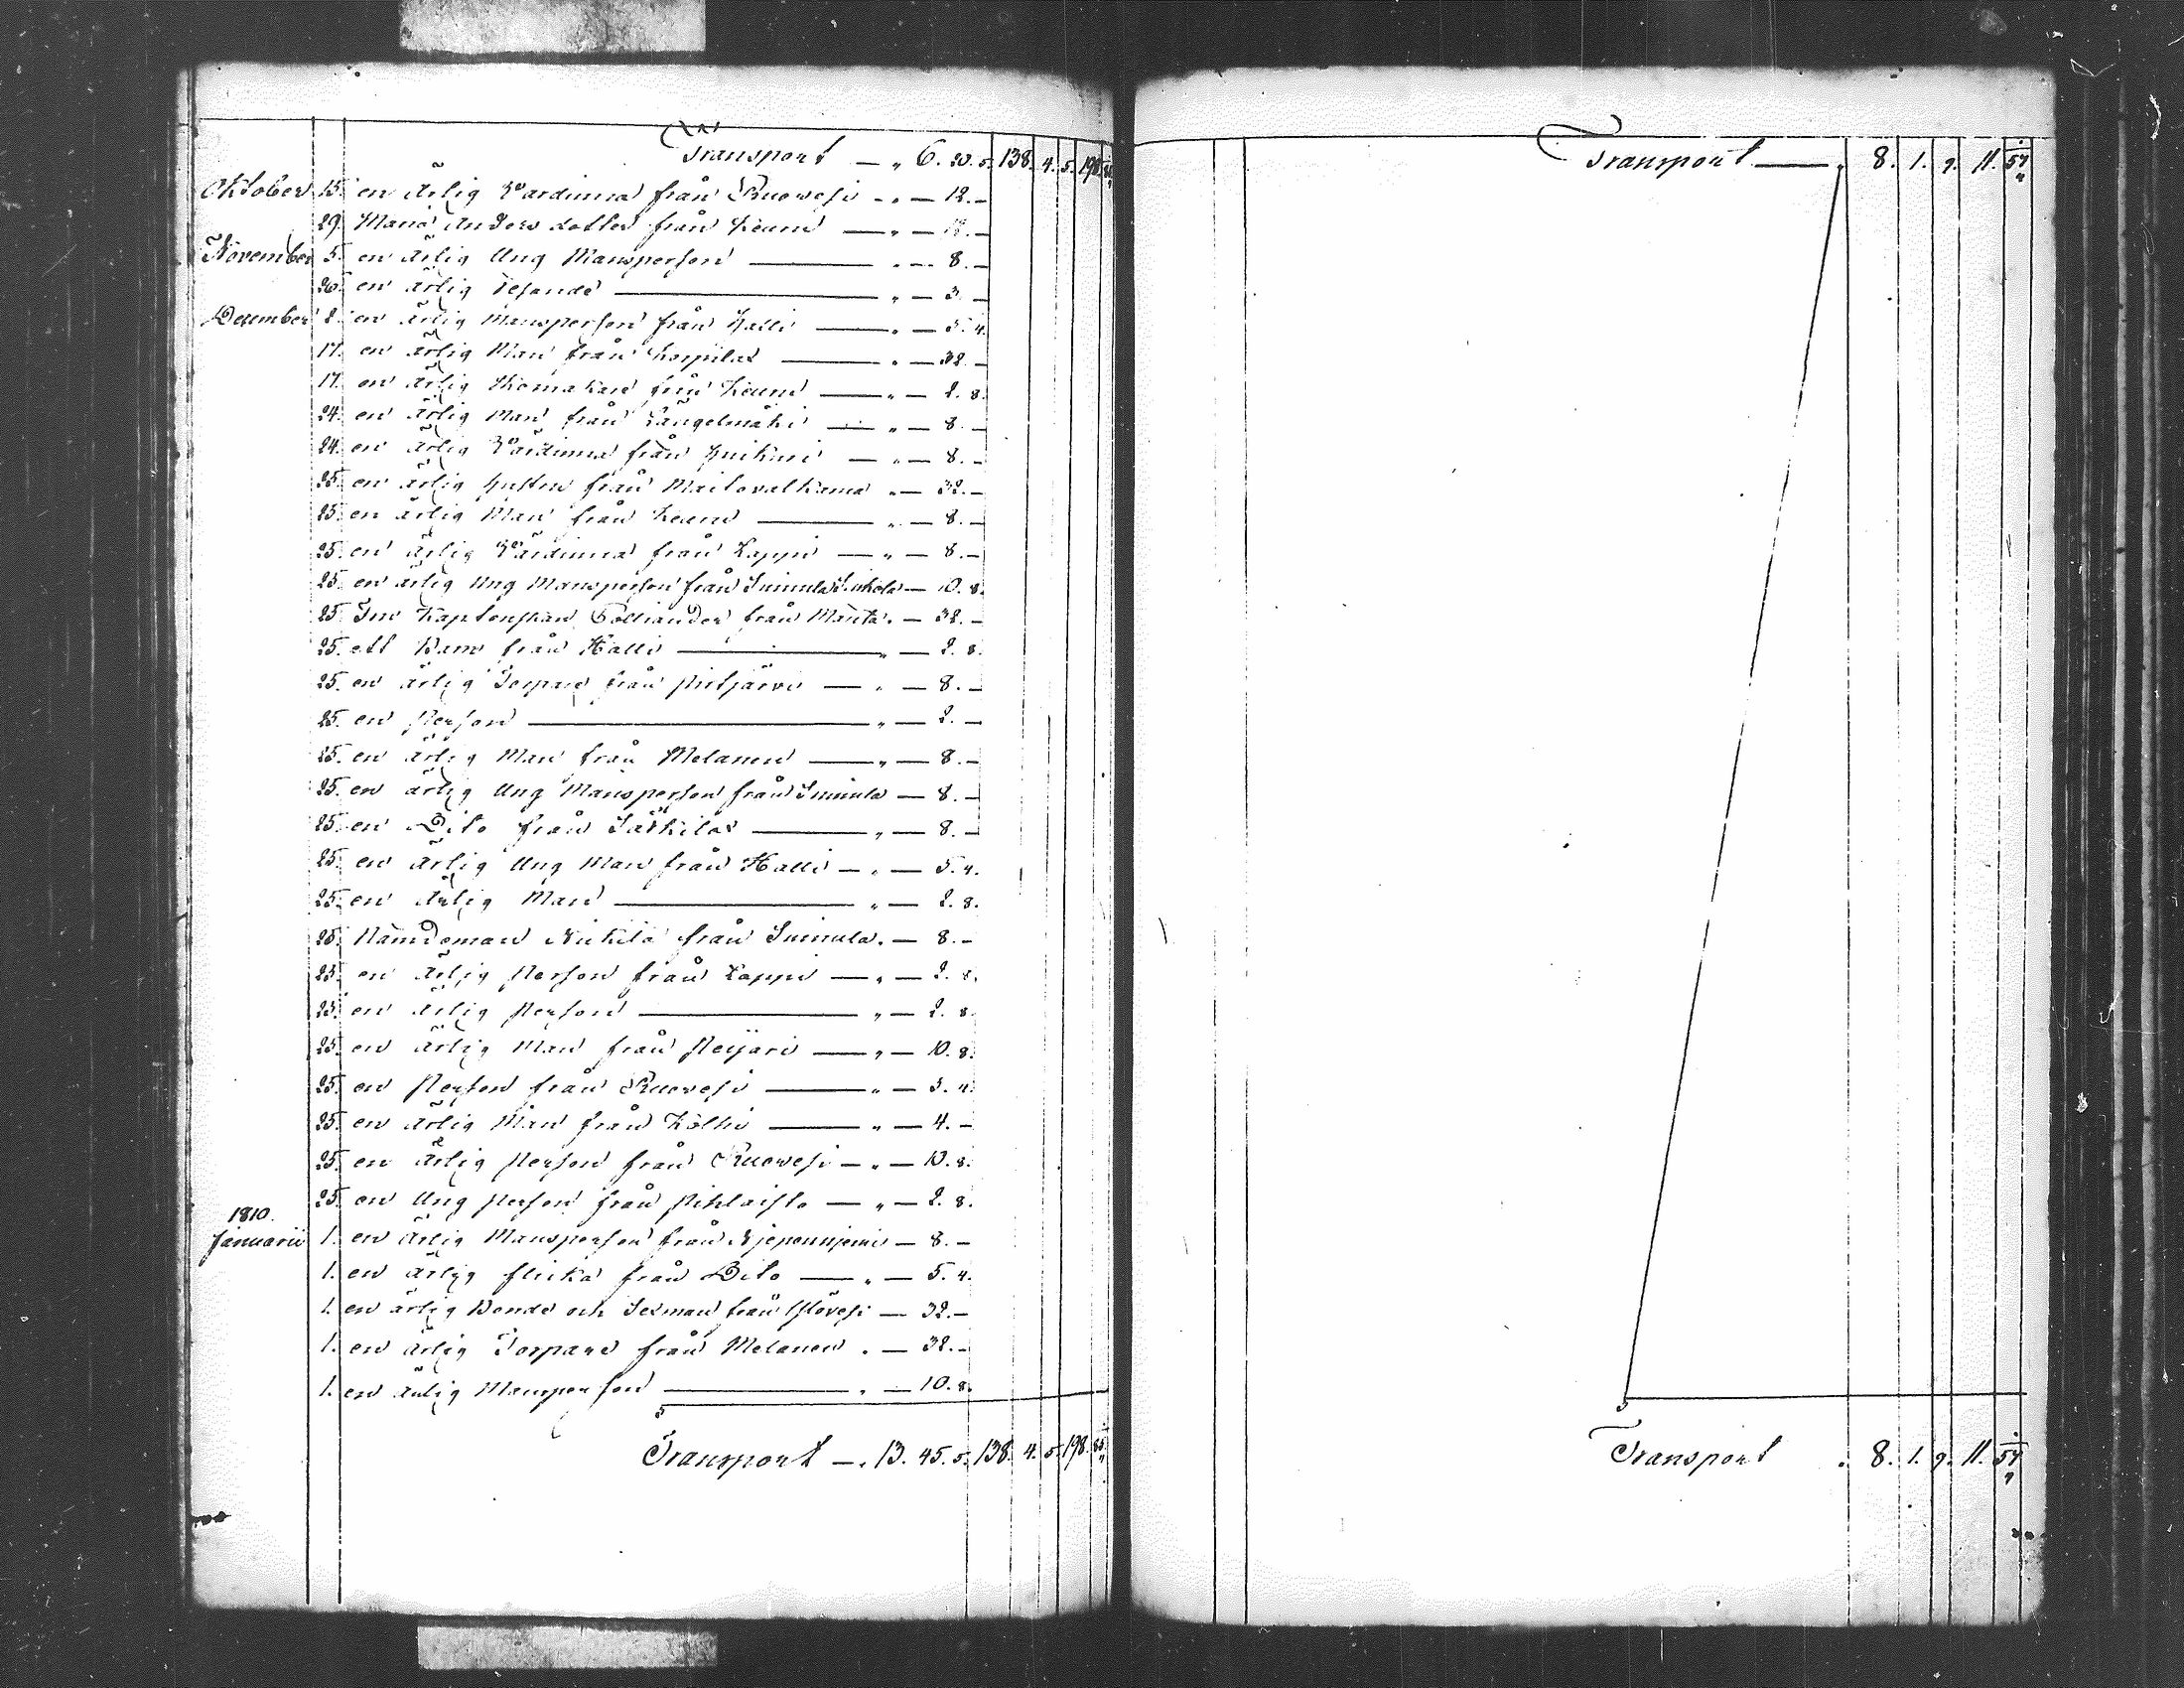 Transport — „ 6. 20. 5. 138. 4. 5. 198.
Oktober 15. en Ärlig Värdinna från Ruovesi - „ — 12. —
29. Maria Anders dotter från Keuru — „ — —
November 5. en Ärlig Ung Mansperson — „ — 8. —
26. en Ärlig Resande — „ — 3. —
December 2. en Ärlig Mansperson från Halli — „ — 5. 4.
17. en Ärlig Man från — „ — 32. —
17. en Ärlig Skomakare från Keuru — „ — 2. 8.
24. en Ärlig Man från Längelmäki — „ — 8. —
24. en Ärlig Värdinna från — „ — 8. —
25. en Ärlig från „ — 32. —
25. en Ärlig Man från Keuru — „ — 8. —
25. en Ärlig Värdinna från Lappi — „ — 8. —
25. en Ärlig Ung Mansperson från — 10. 8.
25. Fru Kaptenskan från Mänttä. — 32. —
25. ett Barn från Halli — „ — 2. 8.
25. en Ärlig Torpare från — „ — 8. —
25. en Person — „ — 2. —
25. en Ärlig Man från Melanen — „ — 8. —
25. en Ärlig Ung Mansperson från Suinula — 8. —
25. en Dito från Särkilax — „ — 8. —
25. en Ärlig Ung Man från Halli — „ — 5. 4.
25. en Ärlig Man — „ — 2. 8.
25. Nämdeman från Suinula. — 8. —
25. en Ärlig Person från Lappi — „ — 2. 8.
25. en Ärlig Person — „ — 2. 8.
25. en Ärlig Man från — „ — 10. 8.
25. en Person från Ruovesi — „ — 5. 4.
25. en Ärlig Man från — „ — 4. —
25. en Ärlig Person från Ruovesi — „ — 10. 8.
25. en Ung Person från Pihlaisto — „ — 2. 8.
1810.
Januarii 1. en Ärlig Mansperson från — 8. —
1. en Ärlig flicka från Dito — „ — 5. 4.
1. en ärlig Bonde och Sexman från — 32. —
1. en Ärlig Torpare från Melanen „ — 32. —
1. en Ärlig Mansperson — „ — 10. 8.
Transport — „ 13. 45. 5. 138. 4. 5. 198. 85
Transport — „ 8. 1. 9. 11. 57
Transport „ 8. 1. 9. 11. 57